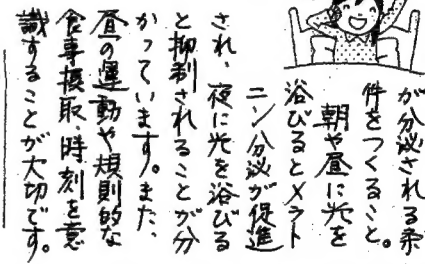 が分泌される条
件をつくること。
朝や昼に光を
浴びるとメラト
ニン分泌が促進
され、夜に光を浴びる
と抑制されることが分
かっています。また、
昼の運動や規則的な
食事摂取、時刻を意
識することが大切です。